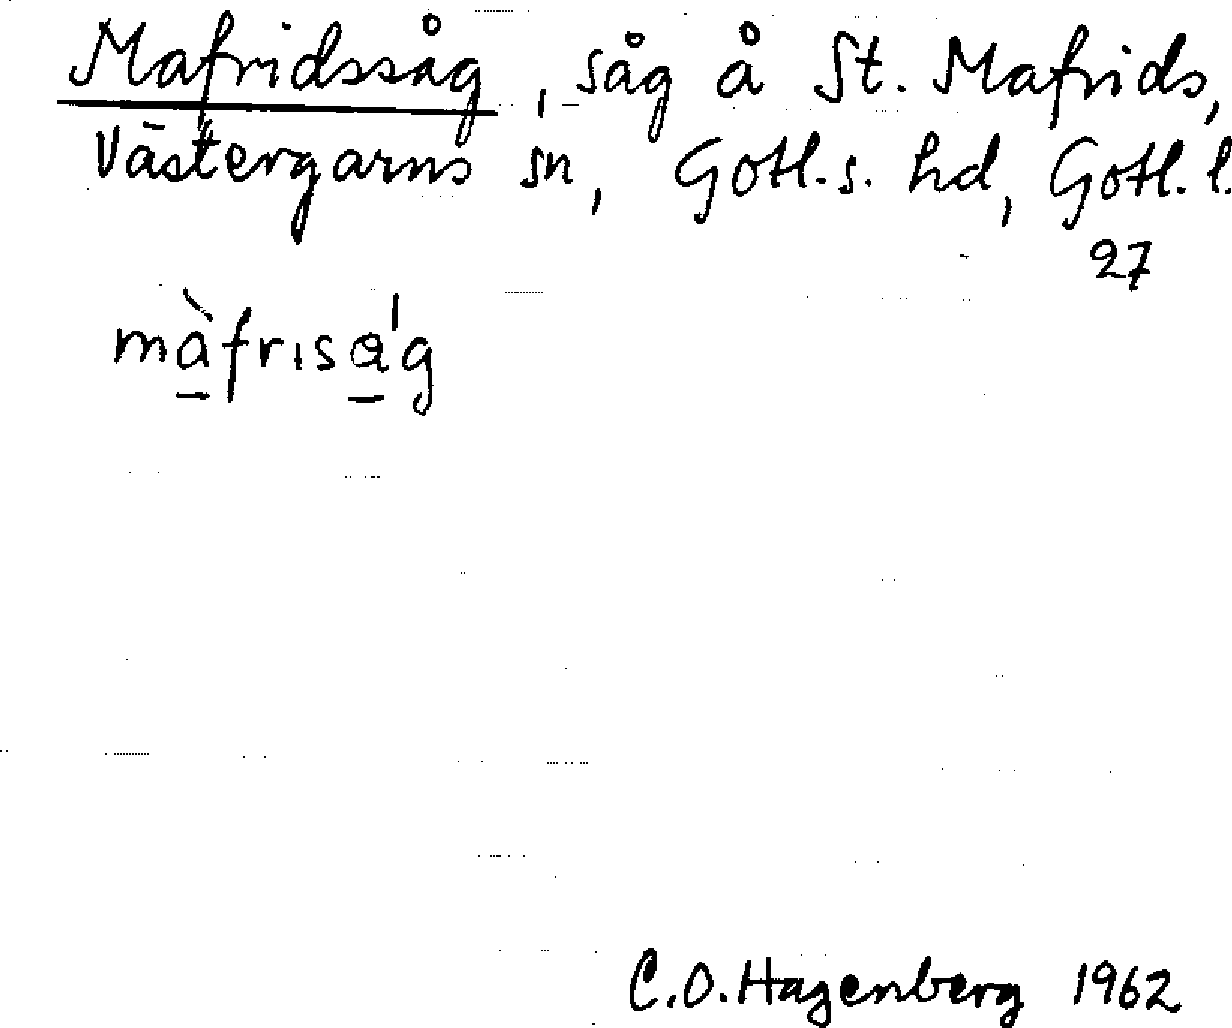 Mafridssåg, såg å St. Mafrids,
Västergarns sn, Gotl. s. hd, Gotl. l.
27
mà̱frisa̱'g
C.O. Hagenberg 1962